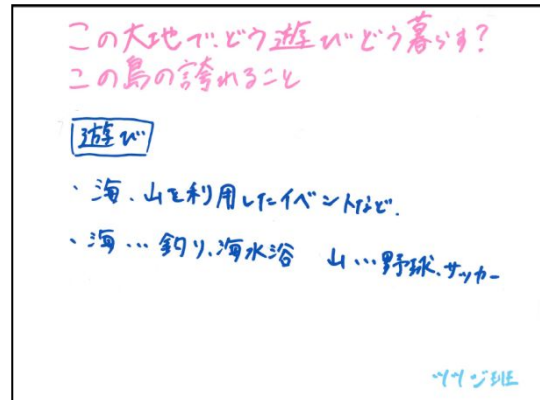 この大地で、どう遊びどう暮らす?
この島の誇れること
遊び
・海、山を利用したイベントなど。
・海…釣り、海水浴 山…野球、サッカー
ツツジ班